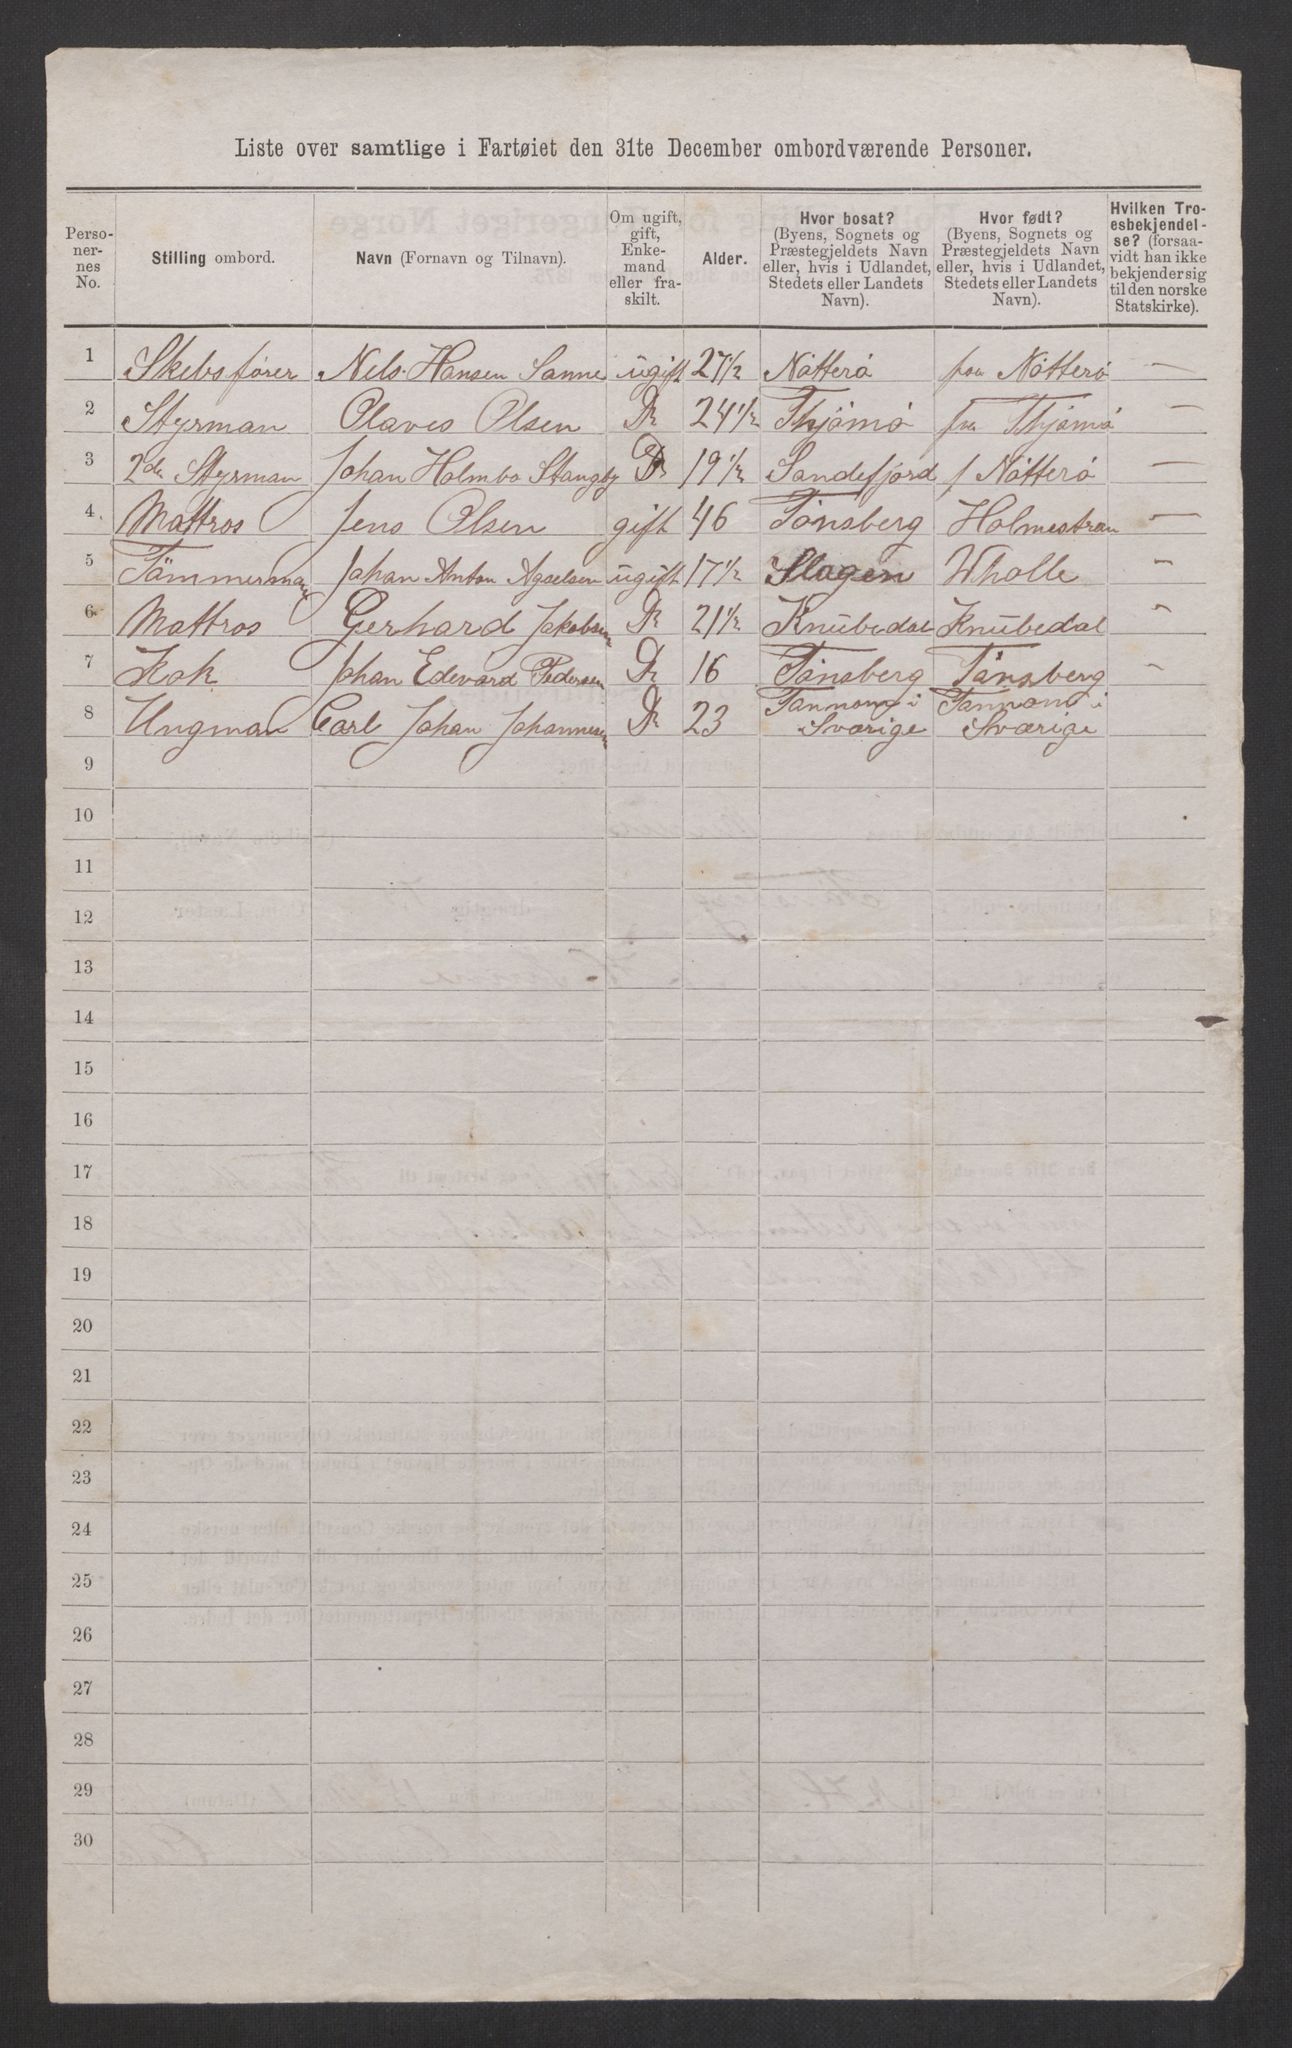 Liste over samtlige i Fartøiet den 31te December ombordværende Personer.
Perso-
ner-
nes
No.
Stilling ombord.
Navn (Fornavn og Tilnavn).
Om ugift,
gift,
Enke-
mand
eller fra-
skilt.
Alder.
Hvor bosat?
(Byens, Sognets og
Præstegjeldets Navn
eller, hvis i Udlandet,
Stedets eller Landets
Navn).
Hvor født?
(Byens, Sognets og
Præstegjeldets Navn
eller, hvis i Udlandet,
Stedets eller Landets
Navn).
Hvilken Tro-
esbekjendel-
se? (forsaa-
vidt han ikke
bekjender sig
til den norske
Statskirke).
1 Skebsfører Nels Hansen Sanne ugift 27 1/2 Nøtterø fra Nøtterø —
2 Styrman Olaves Olsen Do 24 1/2 Thjømø fra Thjømø —
3 2de Styrman Johan Holmbo Stangby Do 19 1/2 Sandefjord f Nøtterø —
4 Mattros Jens Olsen gift 46 Tønsberg Holmestran —
5 Tømmerman Johan Anton Agselsen ugift 17 1/2 Slagen Wholle "
6 Mattros Gerhard Jakobsen Do 21 1/2 Knubedal Knubedal "
7 Kok Johan Edevard Pedersen Do 16 Tønsberg Tønsberg -
8 Ungman Carl Johan Johannesen Do 23 Tannom i Sværige Tannom i Sværige
9
10
11
12
13
14
15
16
17
18
19
20
21
22
23
24
25
26
27
28
29
30